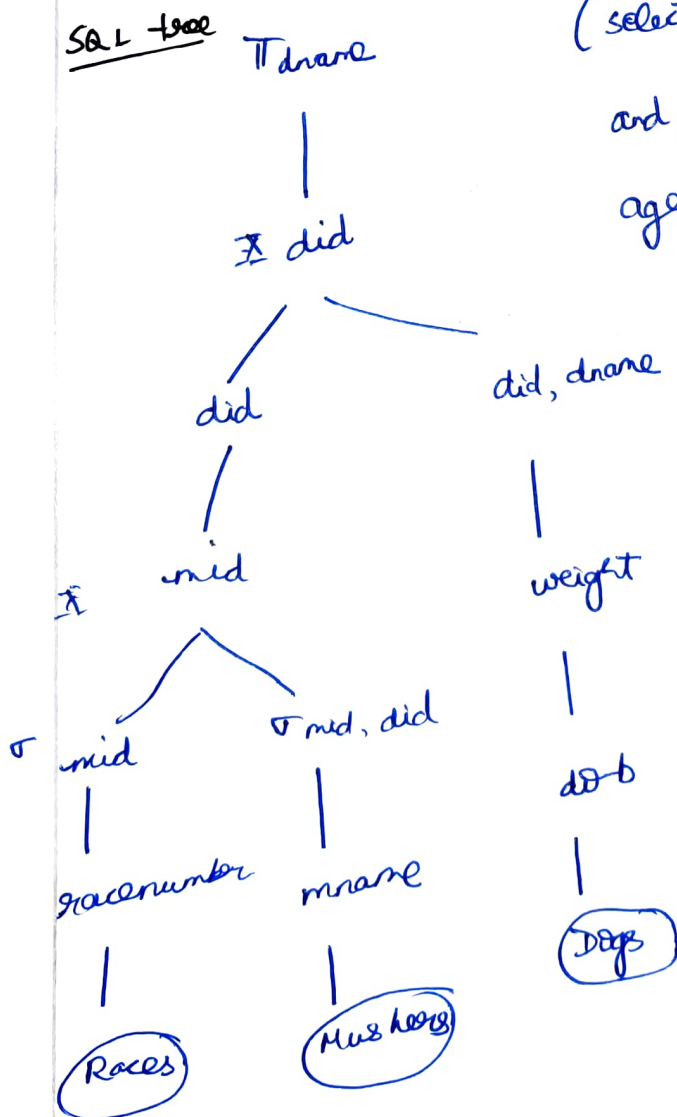 SQL tree
π dname
(selec
and
age
⋈ did
did
did, dname
⋈ mid
weight
σ mid
σ mid, did
dob
racenumber
mname
Dogs
Races
Mushers